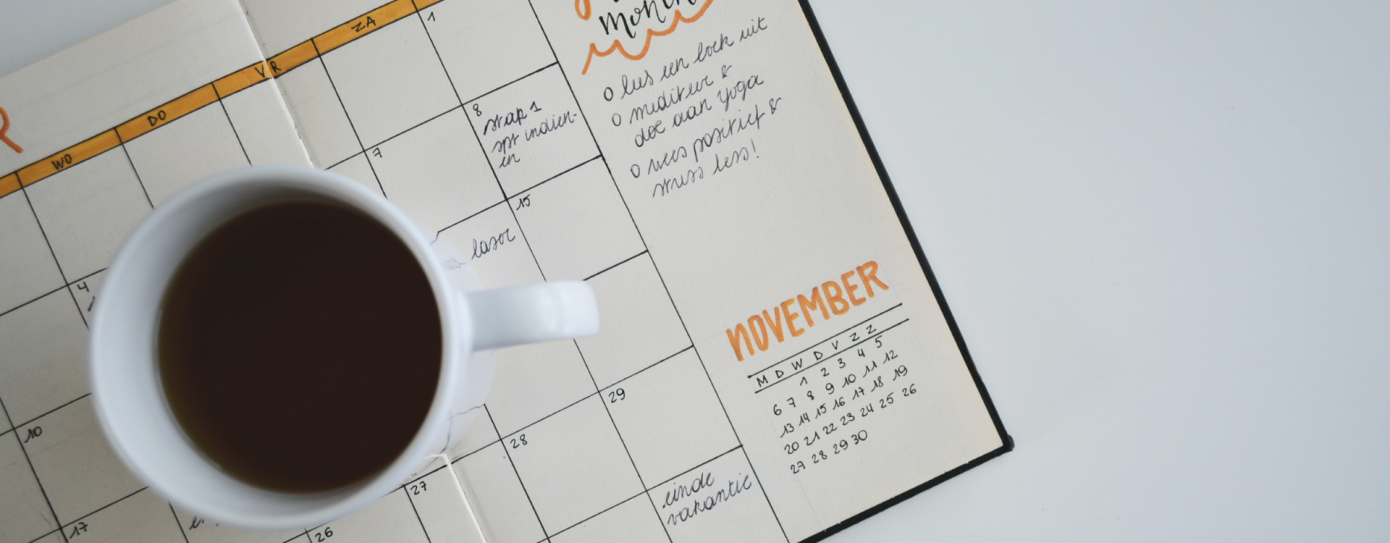 R
WO
DO
VR
ZA
1
8
stap 1
spt indien-
en
7
15
laser
4
10
17
29
28
27
26
einde
vakantie
month
o lees een boek uit
o mediteer &
doe aan yoga
o wees positief &
stress less!
NOVEMBER
M D W D V Z Z
1 2 3 4 5
6 7 8 9 10 11 12
13 14 15 16 17 18 19
20 21 22 23 24 25 26
27 28 29 30